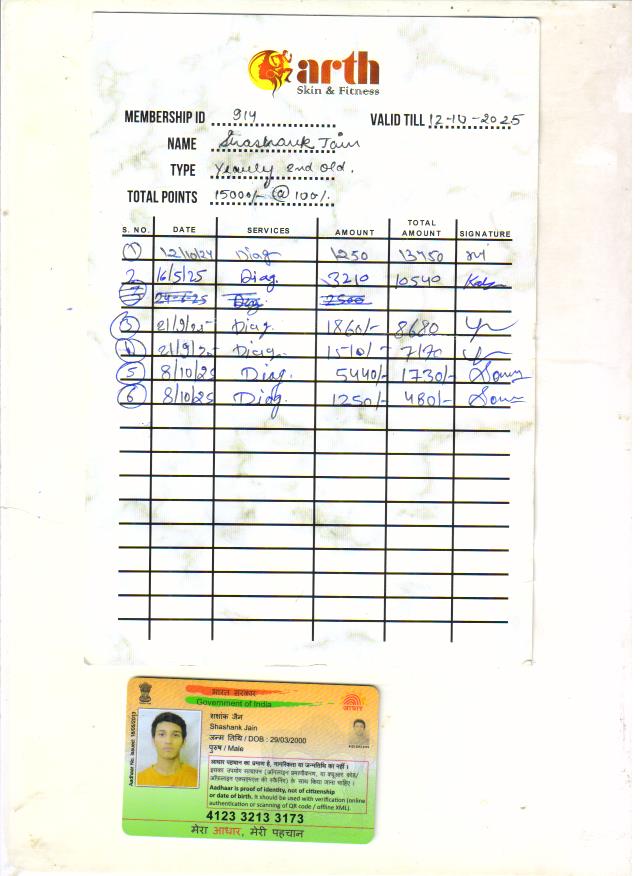 arth
Skin & Fitness
MEMBERSHIP ID 914 VALID TILL 12-10-2025
NAME Shashank Jain
TYPE Yearly 2nd Old.
TOTAL POINTS 15000/- @ 100%
S. NO. DATE SERVICES AMOUNT TOTAL AMOUNT SIGNATURE
1 12/10/24 Diag 1250 13750
2 16/5/25 Diag. 3210 10540
24-6-25 Diag 2500
3 21/9/25 Diag. 1860/- 8680
4 21/9/25 Diag. 1510/- 7170
5 8/10/25 Diag. 5440/- 1730/-
6 8/10/25 Diag. 1250/- 480/-
भारत सरकार
Government of India
आधार
शशांक जैन
Shashank Jain
जन्म तिथि / DOB : 29/03/2000
पुरुष / Male
आधार पहचान का प्रमाण है, नागरिकता या जन्मतिथि का नहीं ।
इसका उपयोग सत्यापन (ऑनलाइन प्रमाणीकरण, या क्यूआर कोड/
ऑफ़लाइन एक्सएमएल की स्कैनिंग) के साथ किया जाना चाहिए ।
Aadhaar is proof of identity, not of citizenship
or date of birth. It should be used with verification (online
authentication or scanning of QR code / offline XML).
4123 3213 3173
मेरा आधार, मेरी पहचान